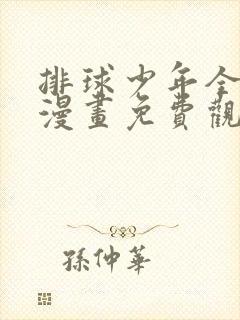 排球少年全
漫畫免費觀
孫仲華